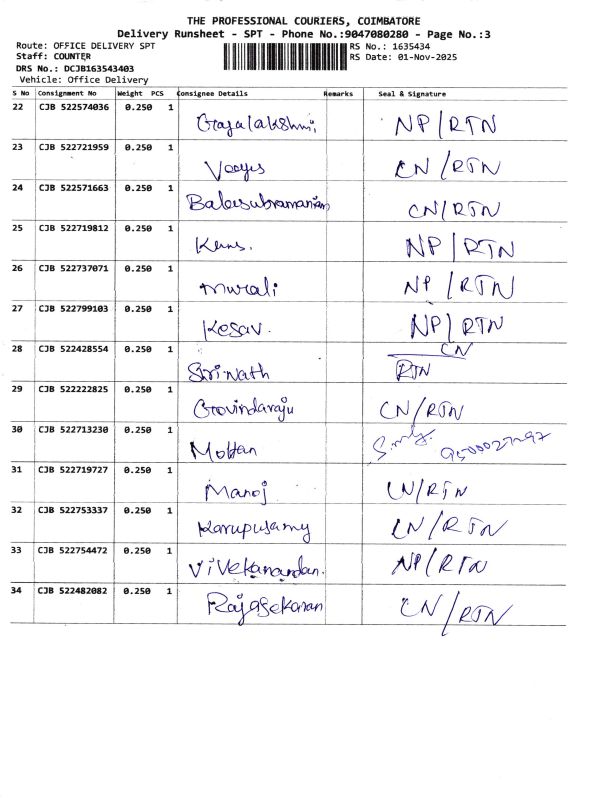 THE PROFESSIONAL COURIERS, COIMBATORE
Delivery Runsheet - SPT - Phone No.:9047080280 - Page No.:3
Route: OFFICE DELIVERY SPT RS No.: 1635434
Staff: COUNTER RS Date: 01-Nov-2025
DRS No.: DCJB163543403
Vehicle: Office Delivery
S No Consignment No Weight PCS Consignee Details Remarks Seal & Signature
22 CJB 522574036 0.250 1 Gajalakshmi NP/RTN
23 CJB 522721959 0.250 1 CN/RTN
24 CJB 522571663 0.250 1 Balasubramaniam CN/RTN
25 CJB 522719812 0.250 1 NP/RTN
26 CJB 522737071 0.250 1 Murali NP/RTN
27 CJB 522799103 0.250 1 Kesav. NP/RTN
28 CJB 522428554 0.250 1 Srinath CN
RTN
29 CJB 522222825 0.250 1 Govindaraju CN/RTN
30 CJB 522713230 0.250 1 Mohan
31 CJB 522719727 0.250 1 Manoj CN/RTN
32 CJB 522753337 0.250 1 Karupusamy CN/RTN
33 CJB 522754472 0.250 1 Vivekanandan. NP/RTN
34 CJB 522482082 0.250 1 Rajasekaran CN/RTN